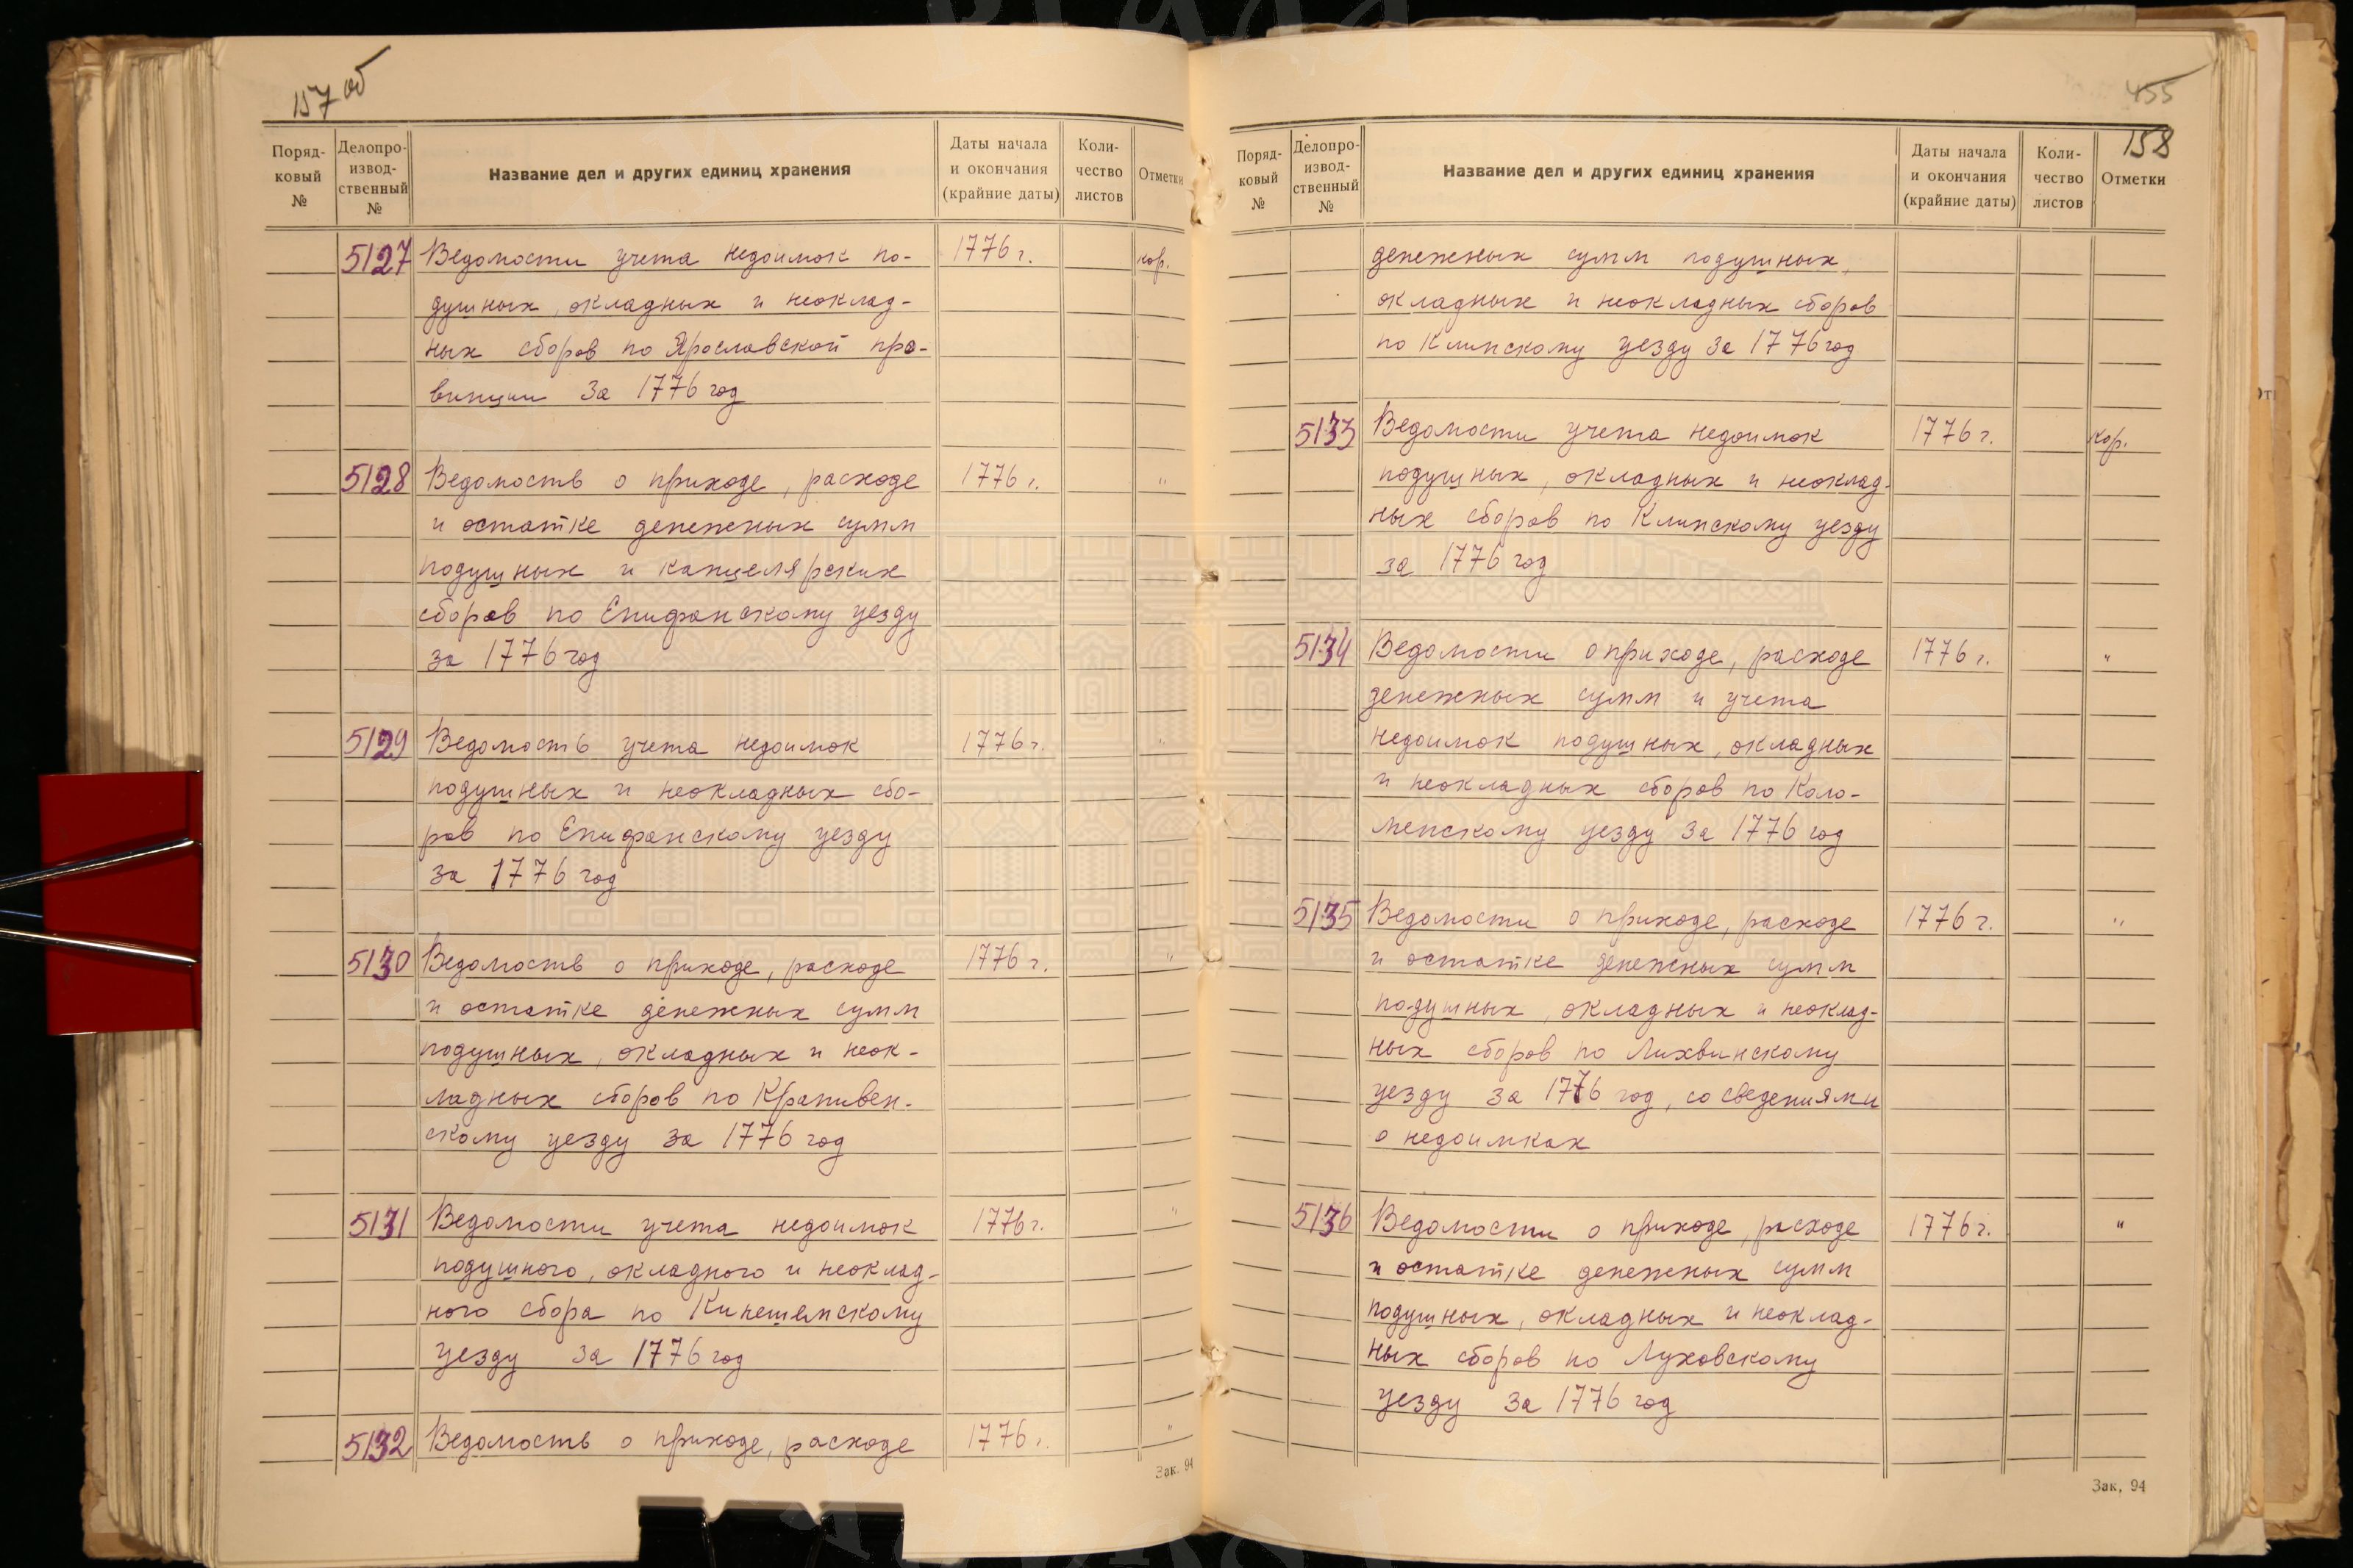 157 об
Поряд-
ковый
№
Делопро-
извод-
ственный
№
Название дел и других единиц хранения
Даты начала
и окончания
(крайние даты)
Коли-
чество
листов
Отметки
5127 Ведомости учета недоимок по- 1776 г. кор.
душных, окладных и неоклад-
ных сборов по Ярославской про-
винции за 1776 год
5128 Ведомость о приходе, расходе 1776 г. "
и остатке денежных сумм
подушных и канцелярских
сборов по Епифанскому уезду
за 1776 год
5129 Ведомость учета недоимок 1776 г. "
подушных и неокладных сбо-
ров по Епифанскому уезду
за 1776 год
5130 Ведомость о приходе, расходе 1776 г. "
и остатке денежных сумм
подушных, окладных и неок-
ладных сборов по Крапивен-
скому уезду за 1776 год
5131 Ведомости учета недоимок 1776 г. "
подушного, окладного и неоклад-
ного сбора по Кинешемскому
уезду за 1776 год
5132 Ведомость о приходе, расходе 1776 г. "
Зак. 94
455
158
Поряд-
ковый
№
Делопро-
извод-
ственный
№
Название дел и других единиц хранения
Даты начала
и окончания
(крайние даты)
Коли-
чество
листов
Отметки
денежных сумм подушных,
окладных и неокладных сборов
по Клинскому уезду за 1776 год
5133 Ведомости учета недоимок 1776 г. кор.
подушных, окладных и неоклад-
ных сборов по Клинскому уезду
за 1776 год
5134 Ведомости о приходе, расходе 1776 г. "
денежных сумм и учета
недоимок подушных, окладных
и неокладных сборов по Коло-
менскому уезду за 1776 год
5135 Ведомости о приходе, расходе 1776 г. "
и остатке денежных сумм
подушных, окладных и неоклад-
ных сборов по Лихвинскому
уезду за 1776 год, со сведениями
о недоимках
5136 Ведомости о приходе, расходе 1776 г. "
и остатке денежных сумм
подушных, окладных и неоклад-
ных сборов по Луховскому
уезду за 1776 год
Зак. 94